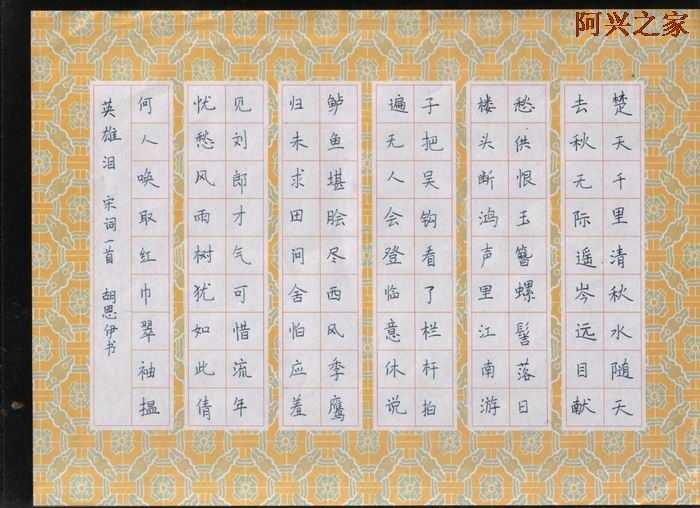 阿兴之家
楚天千里清秋水随天
去秋无际遥岑远目献
愁供恨玉簪螺髻落日
楼头断鸿声里江南游
子把吴钩看了栏杆拍
遍无人会登临意休说
鲈鱼堪脍尽西风季鹰
归未求田问舍怕应羞
见刘郎才气可惜流年
忧愁风雨树犹如此倩
何人唤取红巾翠袖揾
英雄泪 宋词一首 胡恩伊书